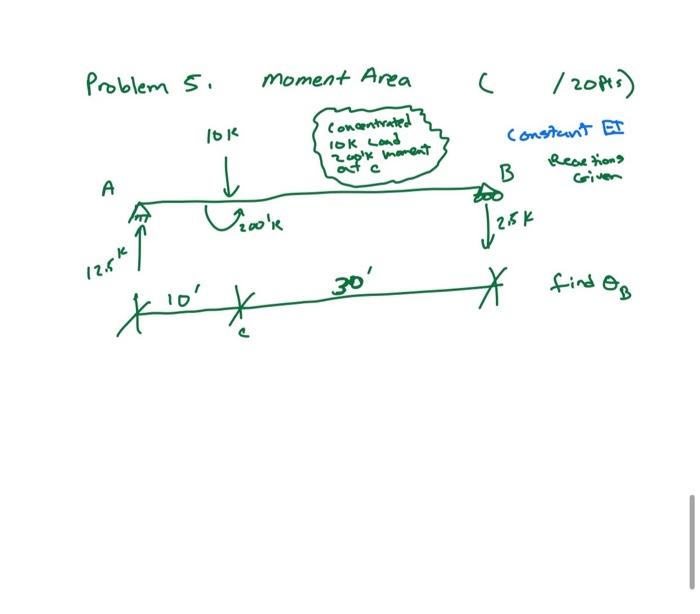 Problem 5. Moment Area ( /20pts)
10 K
Concentrated
10K Load
200'K moment
at C
Constant EI
Reactions
Given
A
B
200'K
2.5 K
12.5 K
10'
30'
find θB
C